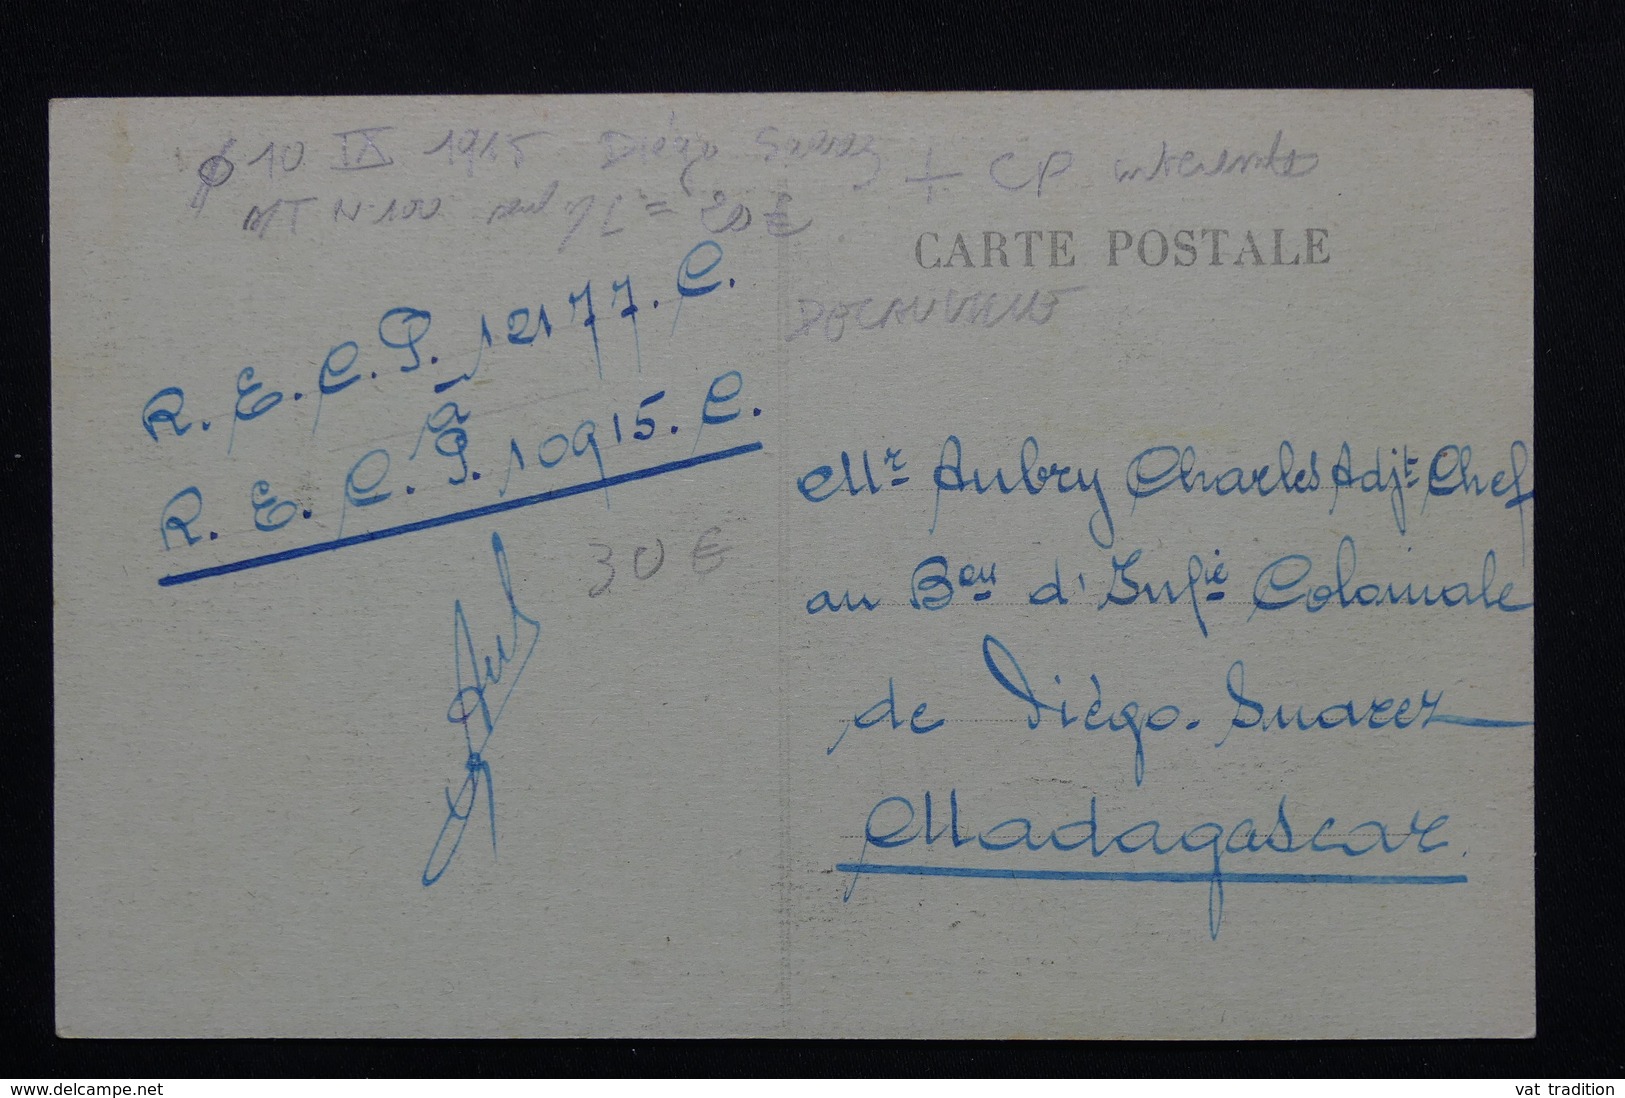 10 IX 1915 Diégo Suarez + CP
N° 100 = 20 €
CARTE POSTALE
DECAUVILLE
R. E. C. P. 12177. C.
à
R. E. C. P. 10915. C.
30 €
Mr Aubry Charles Adjt Chef
au Bon d'Infie Coloniale
de Diégo-Suarez
Madagascar
www.delcampe.net
vat tradition